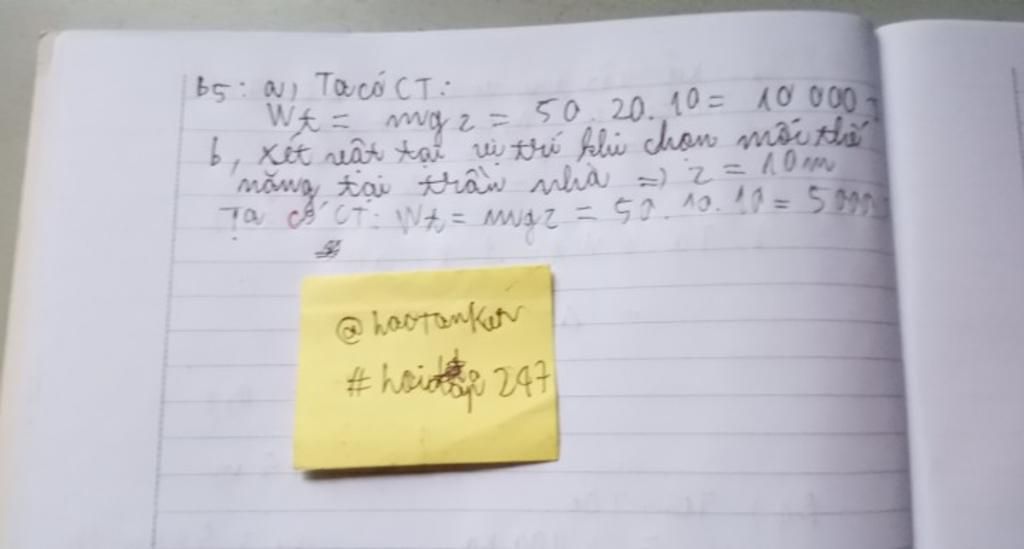 b5: a, Ta có CT:
Wt = mgz = 50.20.10 = 10 000 J
b, Xét vật tại vị trí khi chọn mối thế
năng tại trần nhà => z = 10m
Ta có CT: Wt = mgz = 50.10.10 = 5000
@haoTanker
#hoidap 247